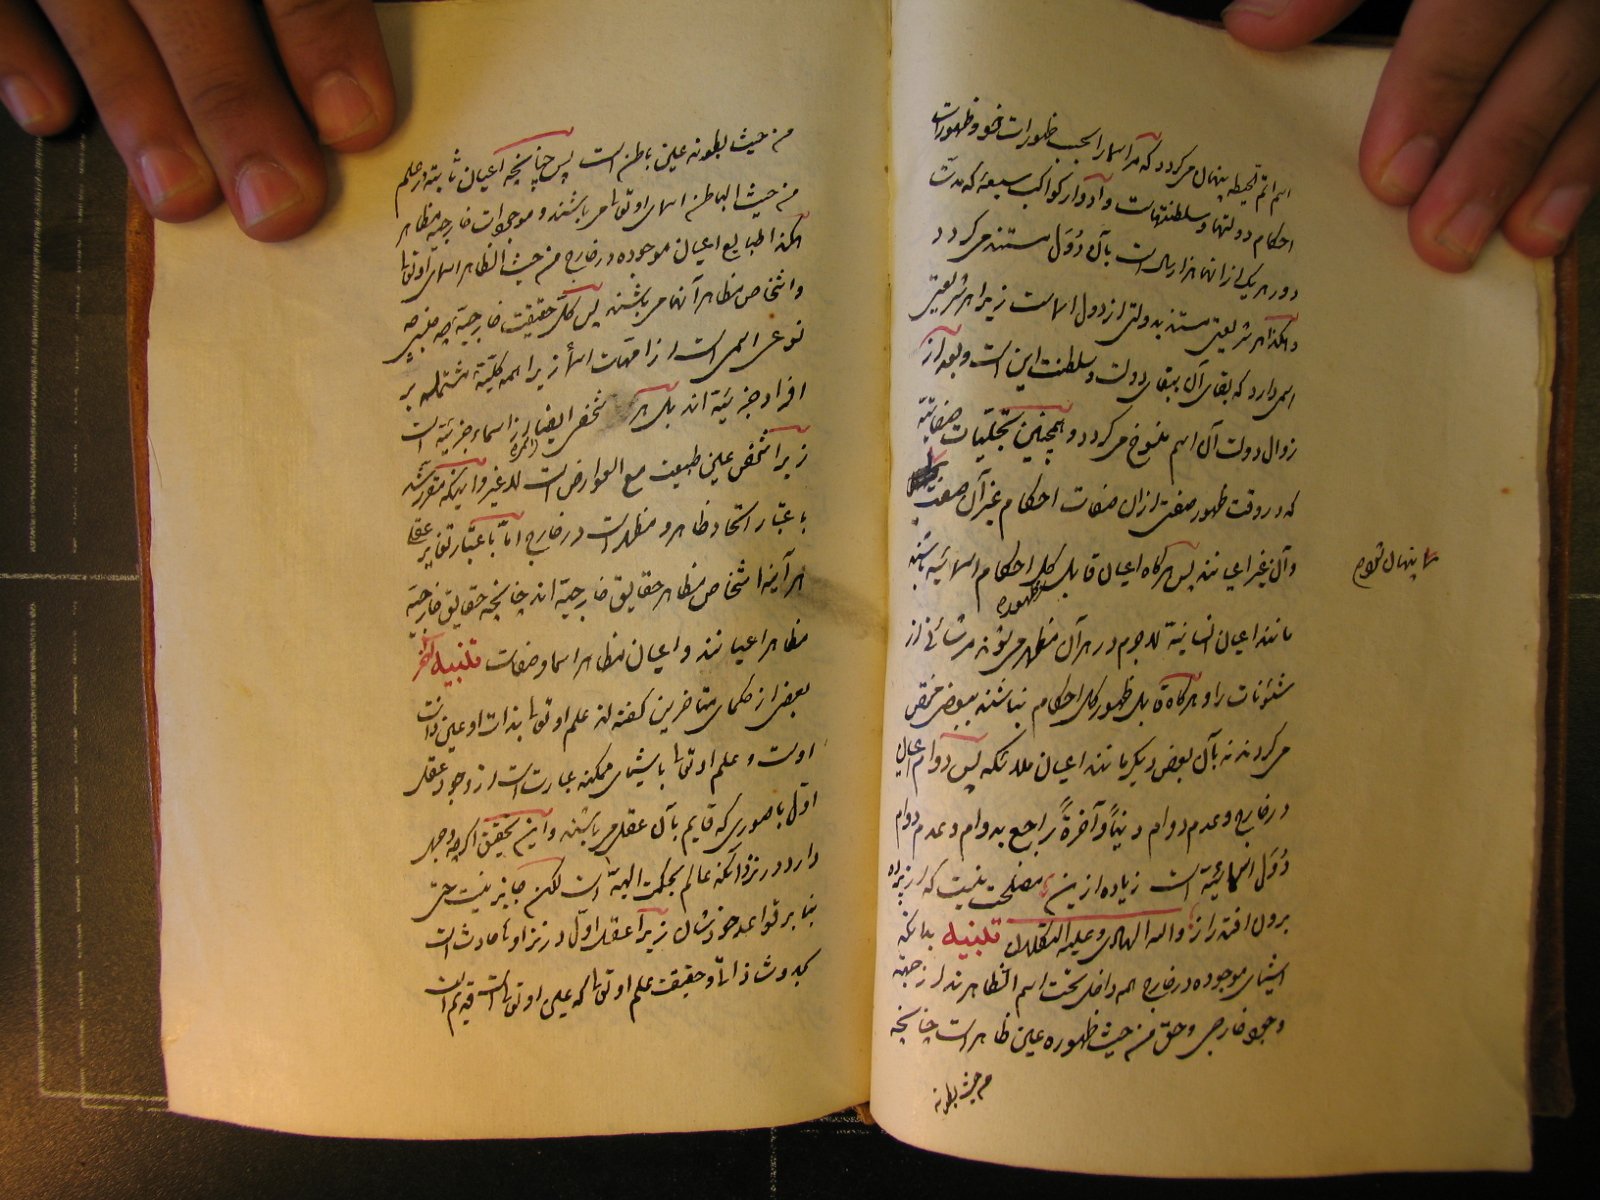 اسم اتم محیطه پنهان می کردد که مر اسما را بحسب ظهورات خود و ظهورات
احکام دولتها و سلطنتهاست و ادوار کواکب سبعهٔ که مدت
دور هر یکی از انها هزار سال است بآن دُوَل مستند می کردد
و هکذا هر شریعتی مستند بدولتی از دول اسماست زیرا هر شریعتی
اسمی دارد که بقای آن ببقای دولت و سلطنت این است و بعد از
زوال دولت آن اسم منسوخ می کردد و همچنین تجلّیات صفاتیّه
که در وقت ظهور صفتی از ان صفات احکام غیر آن صفت
پنهان شود م
وآن نیز غیر اعیانند پس هر کاه اعیان قابل کل احکام اسمائیّه باشند
مانند اعیان انسانیّة لاجرم در هر آن مظهر می شوند مر شانی از
شئونات را و هر کاه قابل ظهور کل احکام نباشند ببعض مختص
می کردند نه بآن بعض دیکر مانند اعیان ملائکه پس دوام اعیان
در خارج و عدم دوام دنیاً و آخرةً راجع بدوام و عدم دوام
دُوَل اسمائیّة است زیاده ازین مصلحت نیست که از پرده
برون افتد راز والله الهادی وعلیه التکلان تنبیه بدانکه
اشیای موجوده در خارج همه داخل تحت اسم الظاهرند از جهة
وجود خارجی و حق من حیث ظهوره عین ظاهر است چنانچه
من حیث بطونه
من حیث بطونه عین باطن است پس چنانچه اعیان ثابته در علم
من حیث الباطن اسمای او تعالی می باشند و موجودات خارجیه مظاهر
هکذا طبایع اعیان موجوده در خارج من حیث الظاهر اسمای او تعالی
و اشخاص مظاهر آنها می باشند پس کل حقیقت خارجیّه چه جنسی چه
نوعی اسمی است از امهات اسما زیرا همه کلیّة مشتمله بر
افراد جزئیّه اند بلکه هر شخص ایضا از اسماء جزئیّه است
زیرا شخص عین طبیعت مع العوارض است لا غیر و اینکه مقرر شد
باعتبار اتحاد ظاهر و مظهر است در خارج امّا باعتبار تغایر عقلی
هر آینه اشخاص مظاهر حقایق خارجیّه اند چنانچه حقایق خارجیّه
مظاهر اعیانند و اعیان مظاهر اسما و صفات تنبیه آخر
بعضی از حکمای متاخرین کفته اند علم او تعالی بذات او عین ذات
اوست و علم او تعالی باشیای ممکنه عبارت است از وجود عقل
اوّل با صوری که قایم بآن عقل می باشند و این تحقیق اکر چه وجهی
دارد در نزد آنکه عالم بحکمت الهیّه است لکن جایز نیست حتی
بنا بر قواعد خودشان زیرا عقل اوّل در نزد اوها حادث است
بحدوث ذاتی و حقیقت علم او تعالی که عین او تعالی است قدیم است